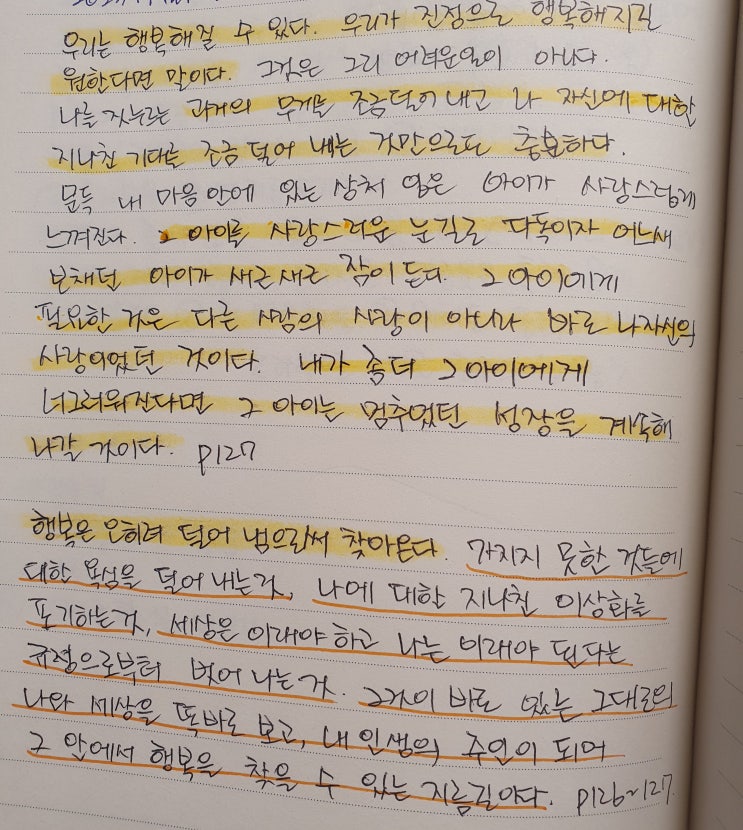 우리는 행복해질 수 있다. 우리가 진정으로 행복해지길
원한다면 말이다. 그것은 그리 어려운일이 아니다.
나를 짓누르는 과거의 무게를 조금덜어 내고 나 자신에 대한
지나친 기대를 조금 덜어 내는 것만으로도 충분하다.
문득 내 마음 안에 있는 상처 입은 아이가 사랑스럽게
느껴진다. 그 아이를 사랑스러운 눈길로 다독이자 어느새
보채던 아이가 새근새근 잠이 든다. 그 아이에게
필요한 것은 다른 사람의 사랑이 아니라 바로 나자신의
사랑이었던 것이다. 내가 좀더 그 아이에게
너그러워진다면 그 아이는 멈추었던 성장을 계속해
나갈 것이다. p127
행복은 오히려 덜어 냄으로써 찾아온다. 가지지 못한 것들에
대한 욕심을 덜어 내는것, 나에 대한 지나친 이상화를
포기하는것, 세상은 이래야 하고 나는 이래야 된다는
규정으로부터 벗어 나는것. 그것이 바로 있는 그대로의
나와 세상을 똑바로 보고, 내 인생의 주인이 되어
그 안에서 행복을 찾을 수 있는 지름길이다. p126~127